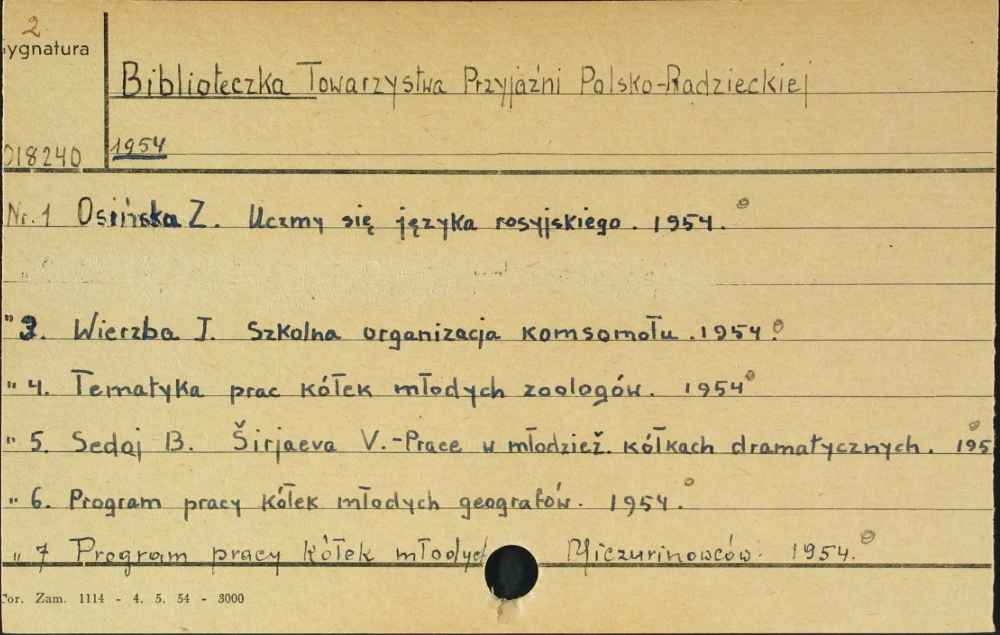 2
ygnatura
Biblioteczka Towarzystwa Przyjaźni Polsko-Radzieckiej
018240
1954
Nr. 1 Osińska Z. Uczmy się języka rosyjskiego. 1954.
" 3. Wierzba I. Szkolna organizacja komsomołu. 1954.
" 4. Tematyka prac kółek młodych zoologów. 1954
" 5. Sedaj B. Širjaeva V.-Prace w młodzież. kółkach dramatycznych. 195
" 6. Program pracy kółek młodych geografów. 1954.
" 7 Program pracy kółek młodych Miczurinowców. 1954.
Tor. Zam. 1114 - 4. 5. 54 - 3000